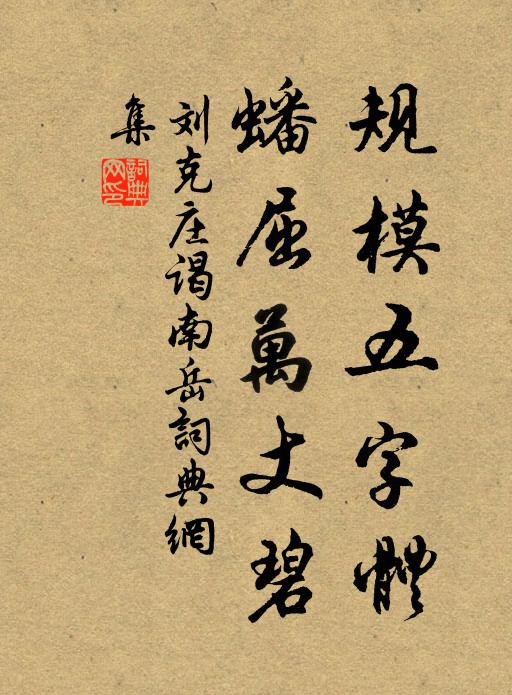 规模五字體
蟠屈萬丈碧
刘克庄谒南岳詞典網
集
詞典网印